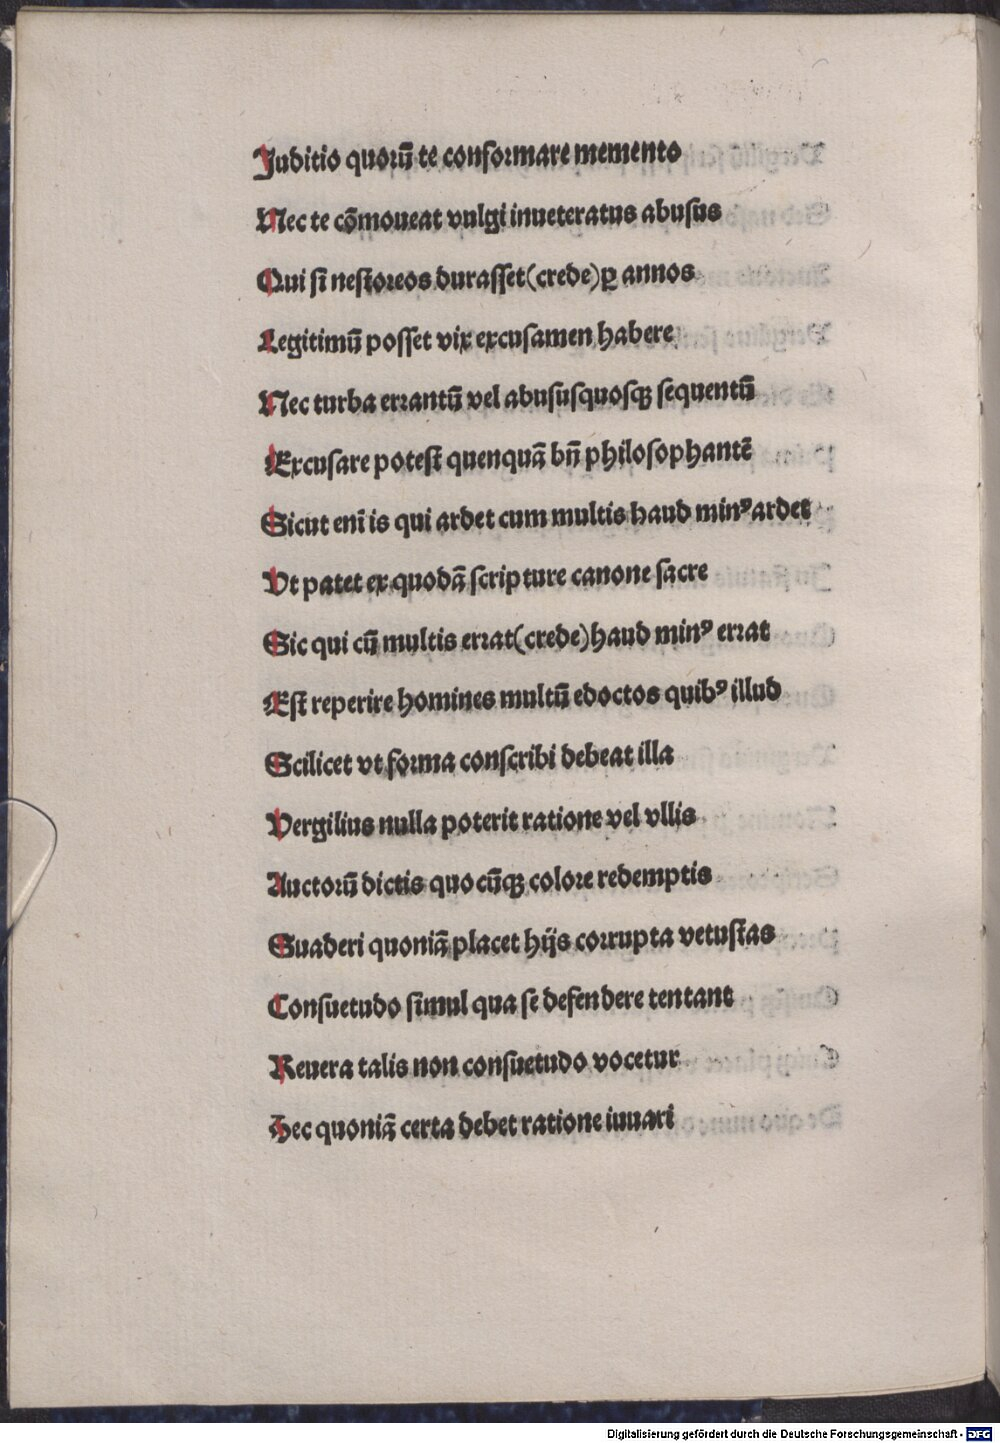 Juditio quorū te conformare memento
Nec te cōmoueat vulgi inueteratus abusus
Qui si nestoreos durasset(crede)ꝑ annos
Legitimū posset vix excusamen habere
Nec turba errantū vel abususquosqꝫ sequentū
Excusare potest quenquā bn̄ philosophantē
Sicut eni̅ is qui ardet cum multis haud minꝰ ardet
Vt patet ex quodā scripture canone sacre
Sic qui cū multis errat(crede)haud minꝰ errat
Est reperire homines multū edoctos quibꝰ illud
Scilicet vt forma conscribi debeat illa
Vergilius nulla poterit ratione vel vllis
Auctorū dictis quo cūqꝫ colore redemptis
Suaderi quoniā placet hijs corrupta vetustas
Consuetudo simul qua se defendere tentant
Reuera talis non consuetudo vocetur
Hec quoniā certa debet ratione iuuari
Digitalisierung gefördert durch die Deutsche Forschungsgemeinschaft - DFG